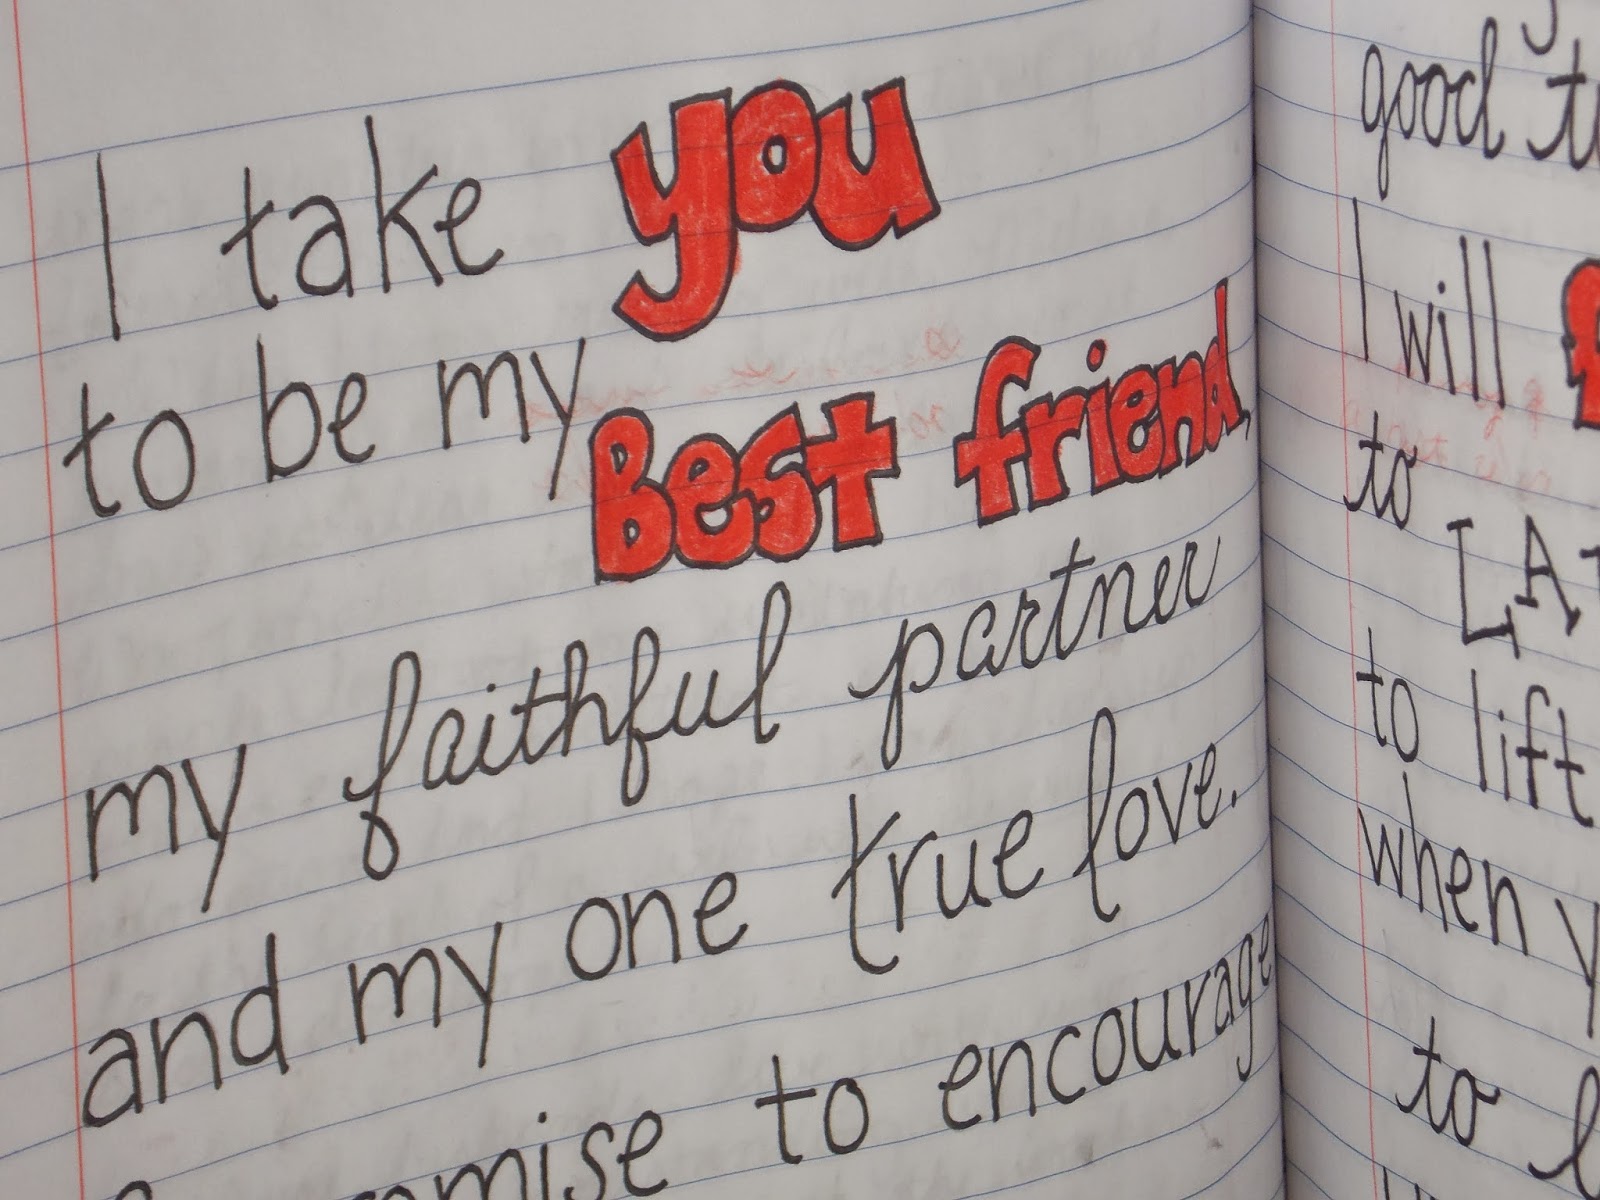 I take you
to be my
Best friend,
my faithful partner
and my one true love.
to encourage
good
I will
to
to lift
when
to